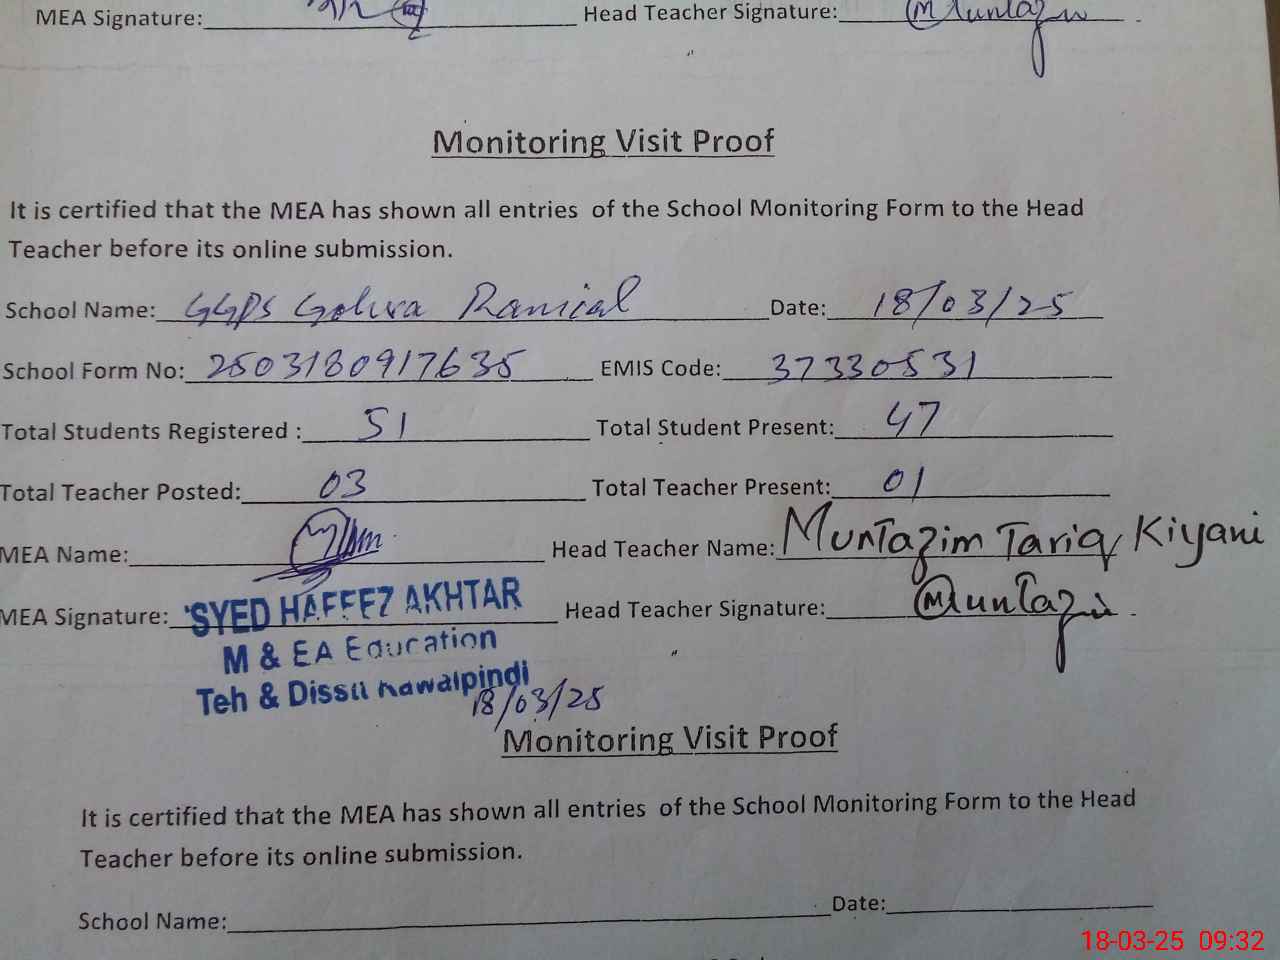 MEA Signature: Head Teacher Signature: Muntazim
Monitoring Visit Proof
It is certified that the MEA has shown all entries of the School Monitoring Form to the Head
Teacher before its online submission.
School Name: GGPS Golwa Date: 18/03/25
School Form No: 2503180917635 EMIS Code: 37330531
Total Students Registered : 51 Total Student Present: 47
Total Teacher Posted: 03 Total Teacher Present: 01
MEA Name: Head Teacher Name: Muntazim Tariq Kiyani
MEA Signature: SYED HAFEEZ AKHTAR Head Teacher Signature: Muntazim
M & EA Education
Teh & Disstt Rawalpindi
18/03/25
Monitoring Visit Proof
It is certified that the MEA has shown all entries of the School Monitoring Form to the Head
Teacher before its online submission.
School Name: Date:
18-03-25 09:32